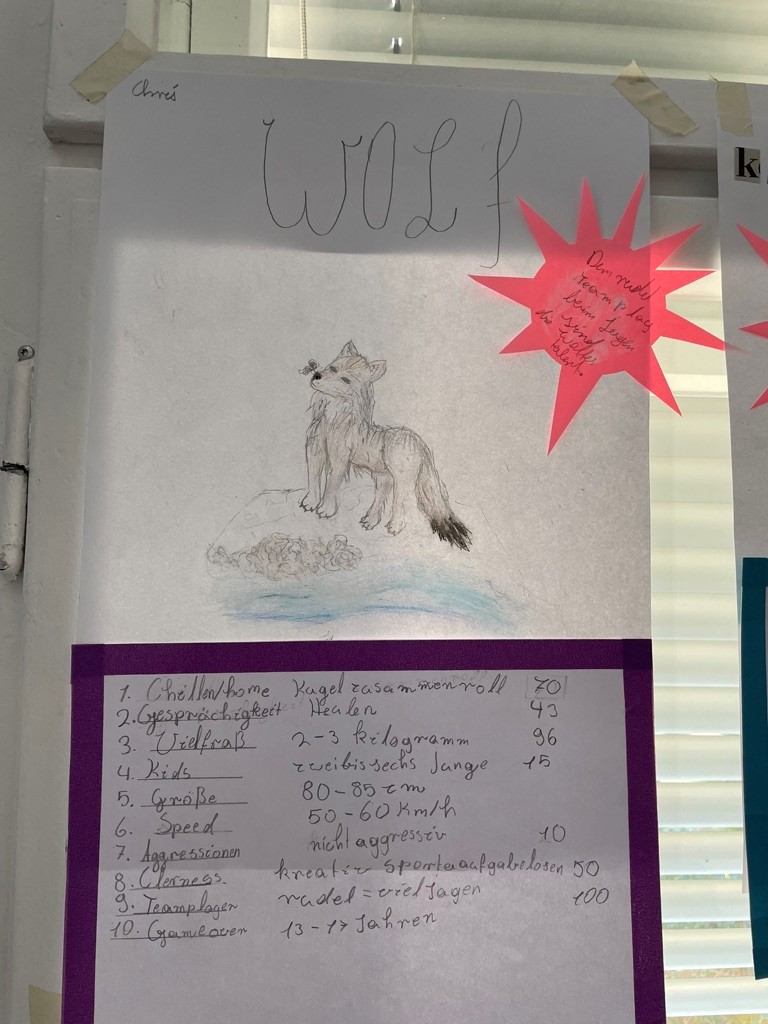 Chris
WOLf
k
Dem rudel
teamplay
beim Jagen
sind
die Wölfe
talent.
1. Chillen/home Kugel zasammenroll 70
2. Gesprächigkeit Healen 43
3. Vielfraß 2-3 kilogramm 96
4. Kids zweibissechs Junge 15
5. Größe 80-85 cm
6. Speed 50-60 Km/h
7. Aggressionen nicht aggressiv 10
8. Clerness kreativ Sportaaufgabelosen 50
9. Teamplager rudel = viel Jagen 100
10. Gameover 13-17 Jahren